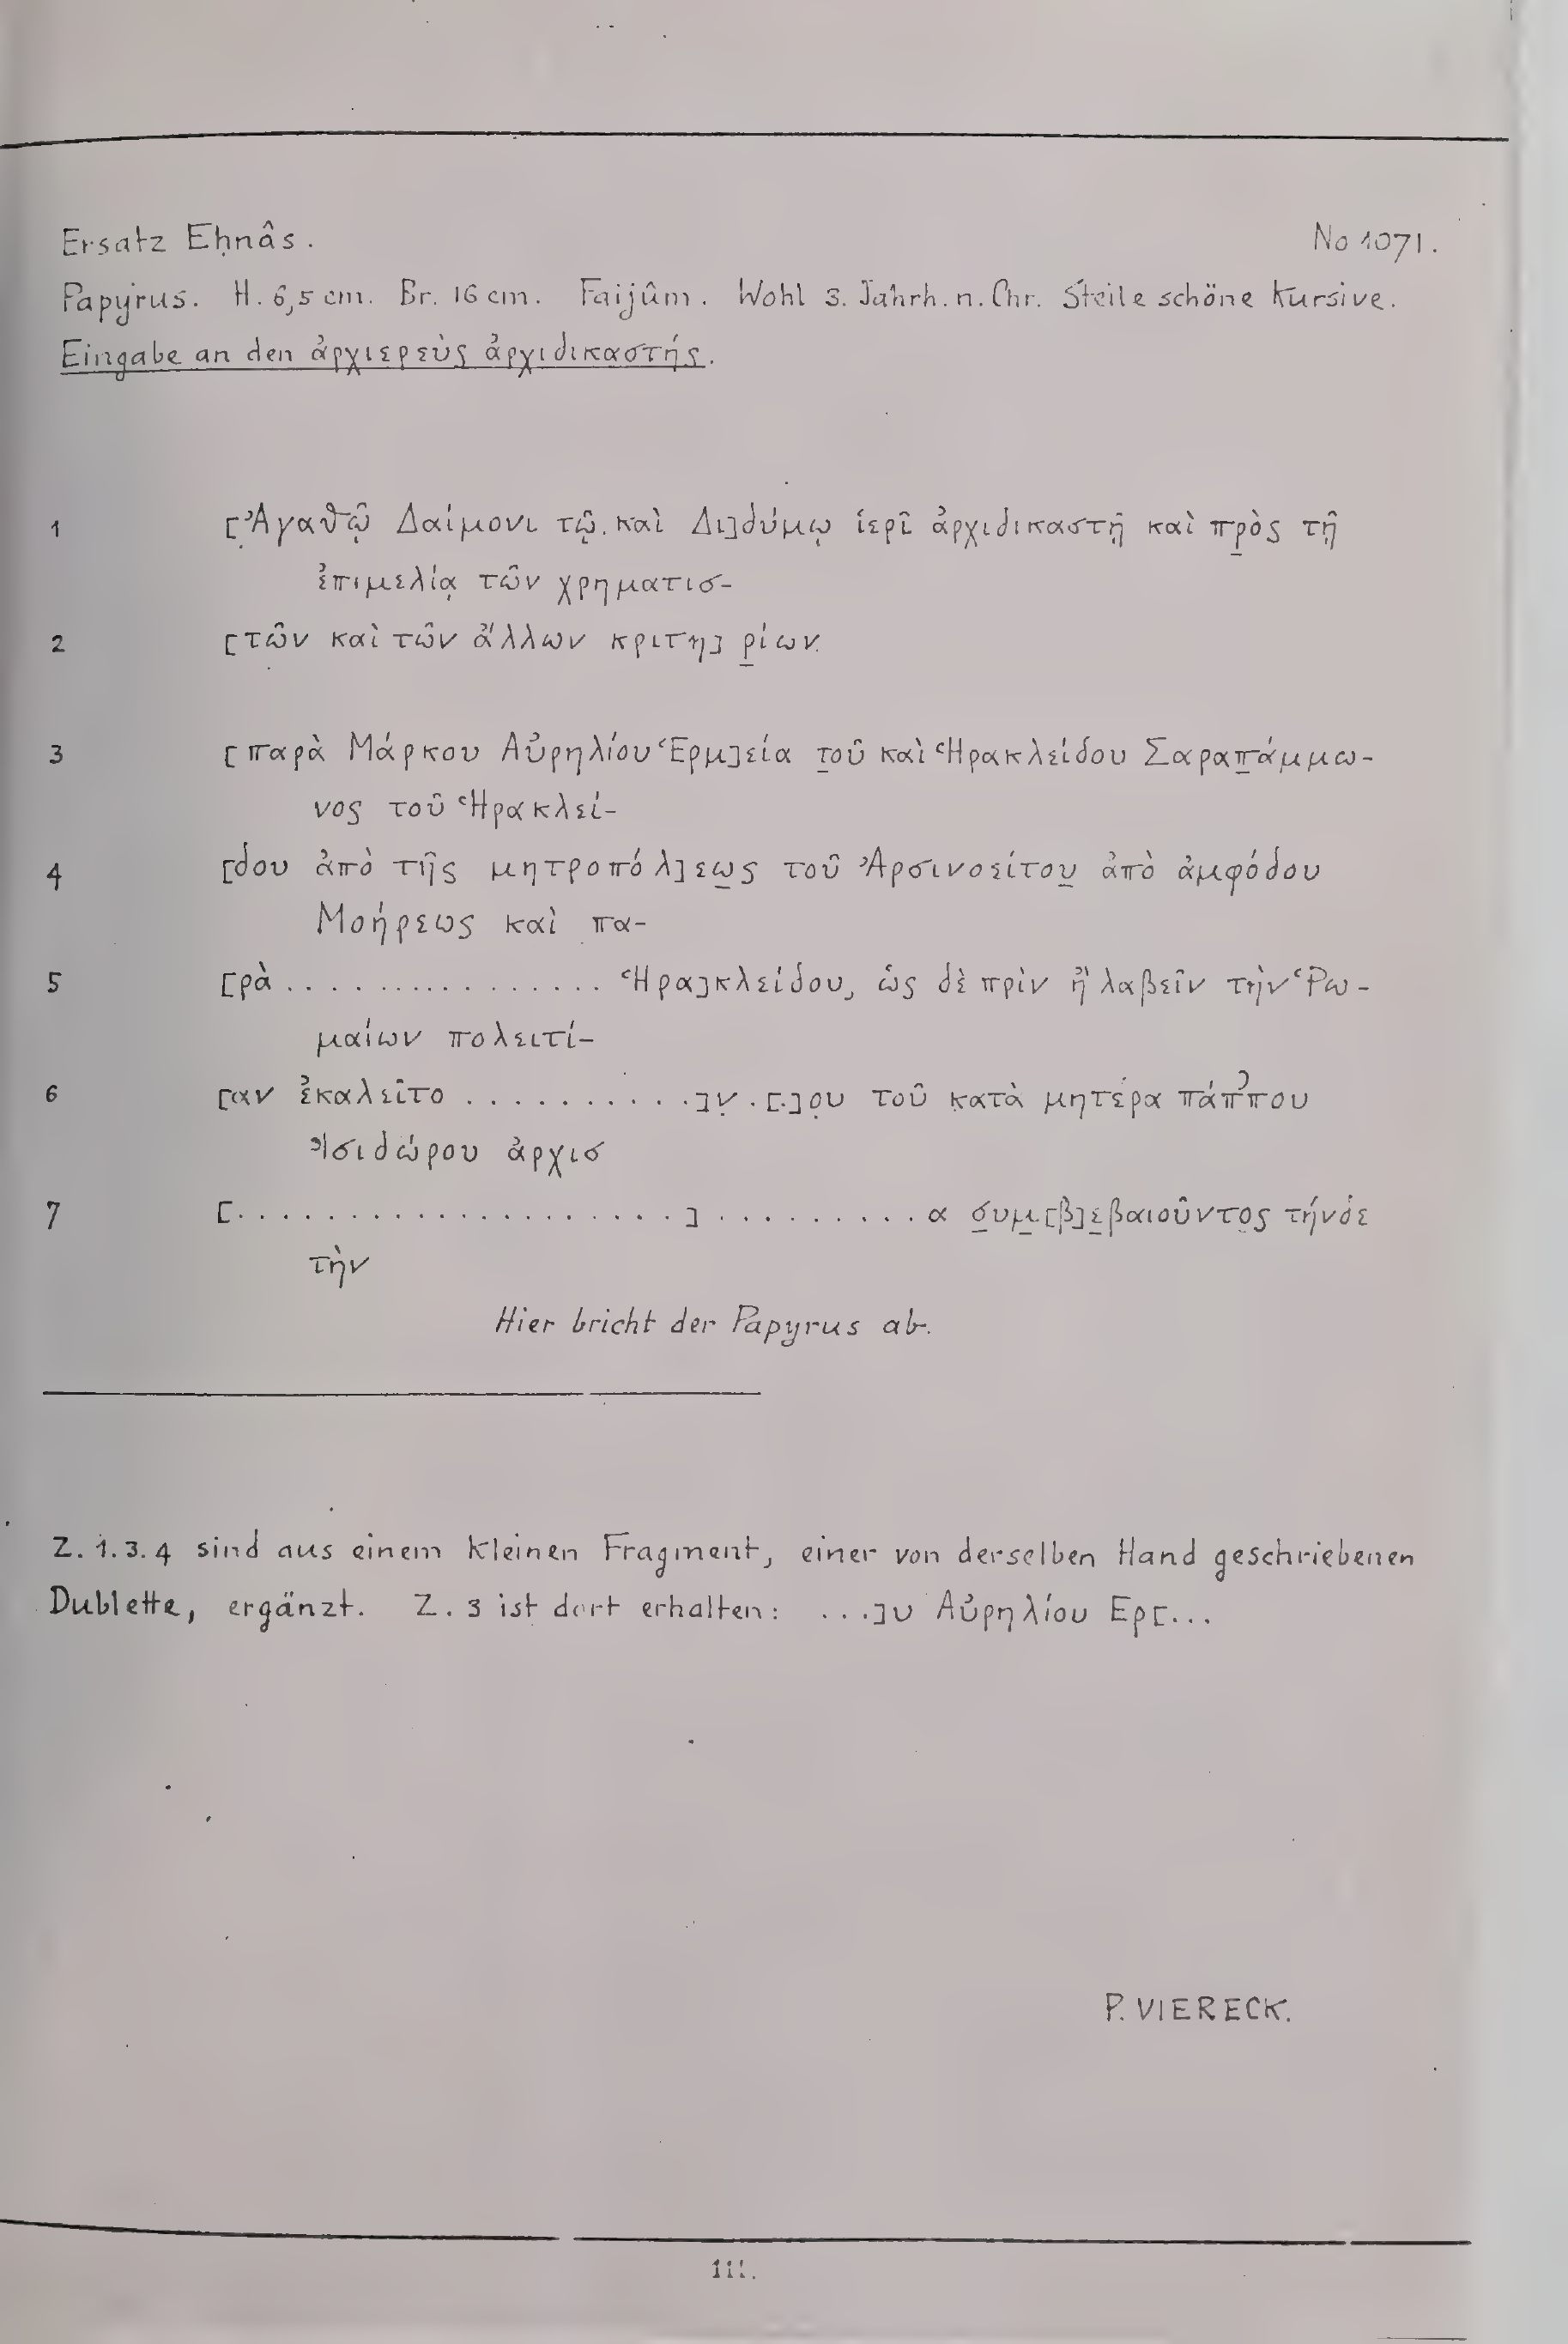 Ersatz Eḥnâs. No 1071.
Papyrus. H. 6,5 cm. Br. 16 cm. Faijûm. Wohl 3. Jahrh. n. Chr. Steile schöne Kursive.
Eingabe an den ἀρχιερεὺς ἀρχιδικαστής.
1 [Ἀγαθῷ Δαίμονι τῷ καὶ Δι]δύμῳ ἱερῖ ἀρχιδικαστῇ καὶ πρ̣ὸς τῇ
ἐπιμελίᾳ τῶν χρηματισ-
2 [τῶν καὶ τῶν ἄλλων κριτη]ρ̣ίων.
3 [παρὰ Μάρκου Αὐρηλίου Ἑρμ]εία τ̣οῦ καὶ Ἡρακλείδου Σαραπ̣άμμω-
νος τοῦ Ἡρακλεί-
4 [δου ἀπὸ τῆς μητροπόλ]εω̣ς τοῦ Ἀρσινοείτου̣ ἀπὸ ἀμφόδου
Μοήρεως καὶ πα-
5 [ρὰ ............... Ἡρα]κλείδου, ὡς δὲ πρὶν ἢ λαβεῖν τὴν Ῥω-
μαίων πολειτί-
6 [αν ἐκαλεῖτο ...........]ν̣.[.]ο̣υ τοῦ κ̣ατὰ μητέρα πάπ᾽που
Ἰσιδώρου ἀρχισ
7 [.....................] ..........α σ̣υμ̣[β]ε̣βαιοῦντο̣ς τήνδε
τὴν
Hier bricht der Papyrus ab.
Z. 1. 3. 4 sind aus einem kleinen Fragment, einer von derselben Hand geschriebenen
Dublette, ergänzt. Z. 3 ist dort erhalten: ...]υ Αὐρηλίου Ερ[...
P. VIERECK.
111.